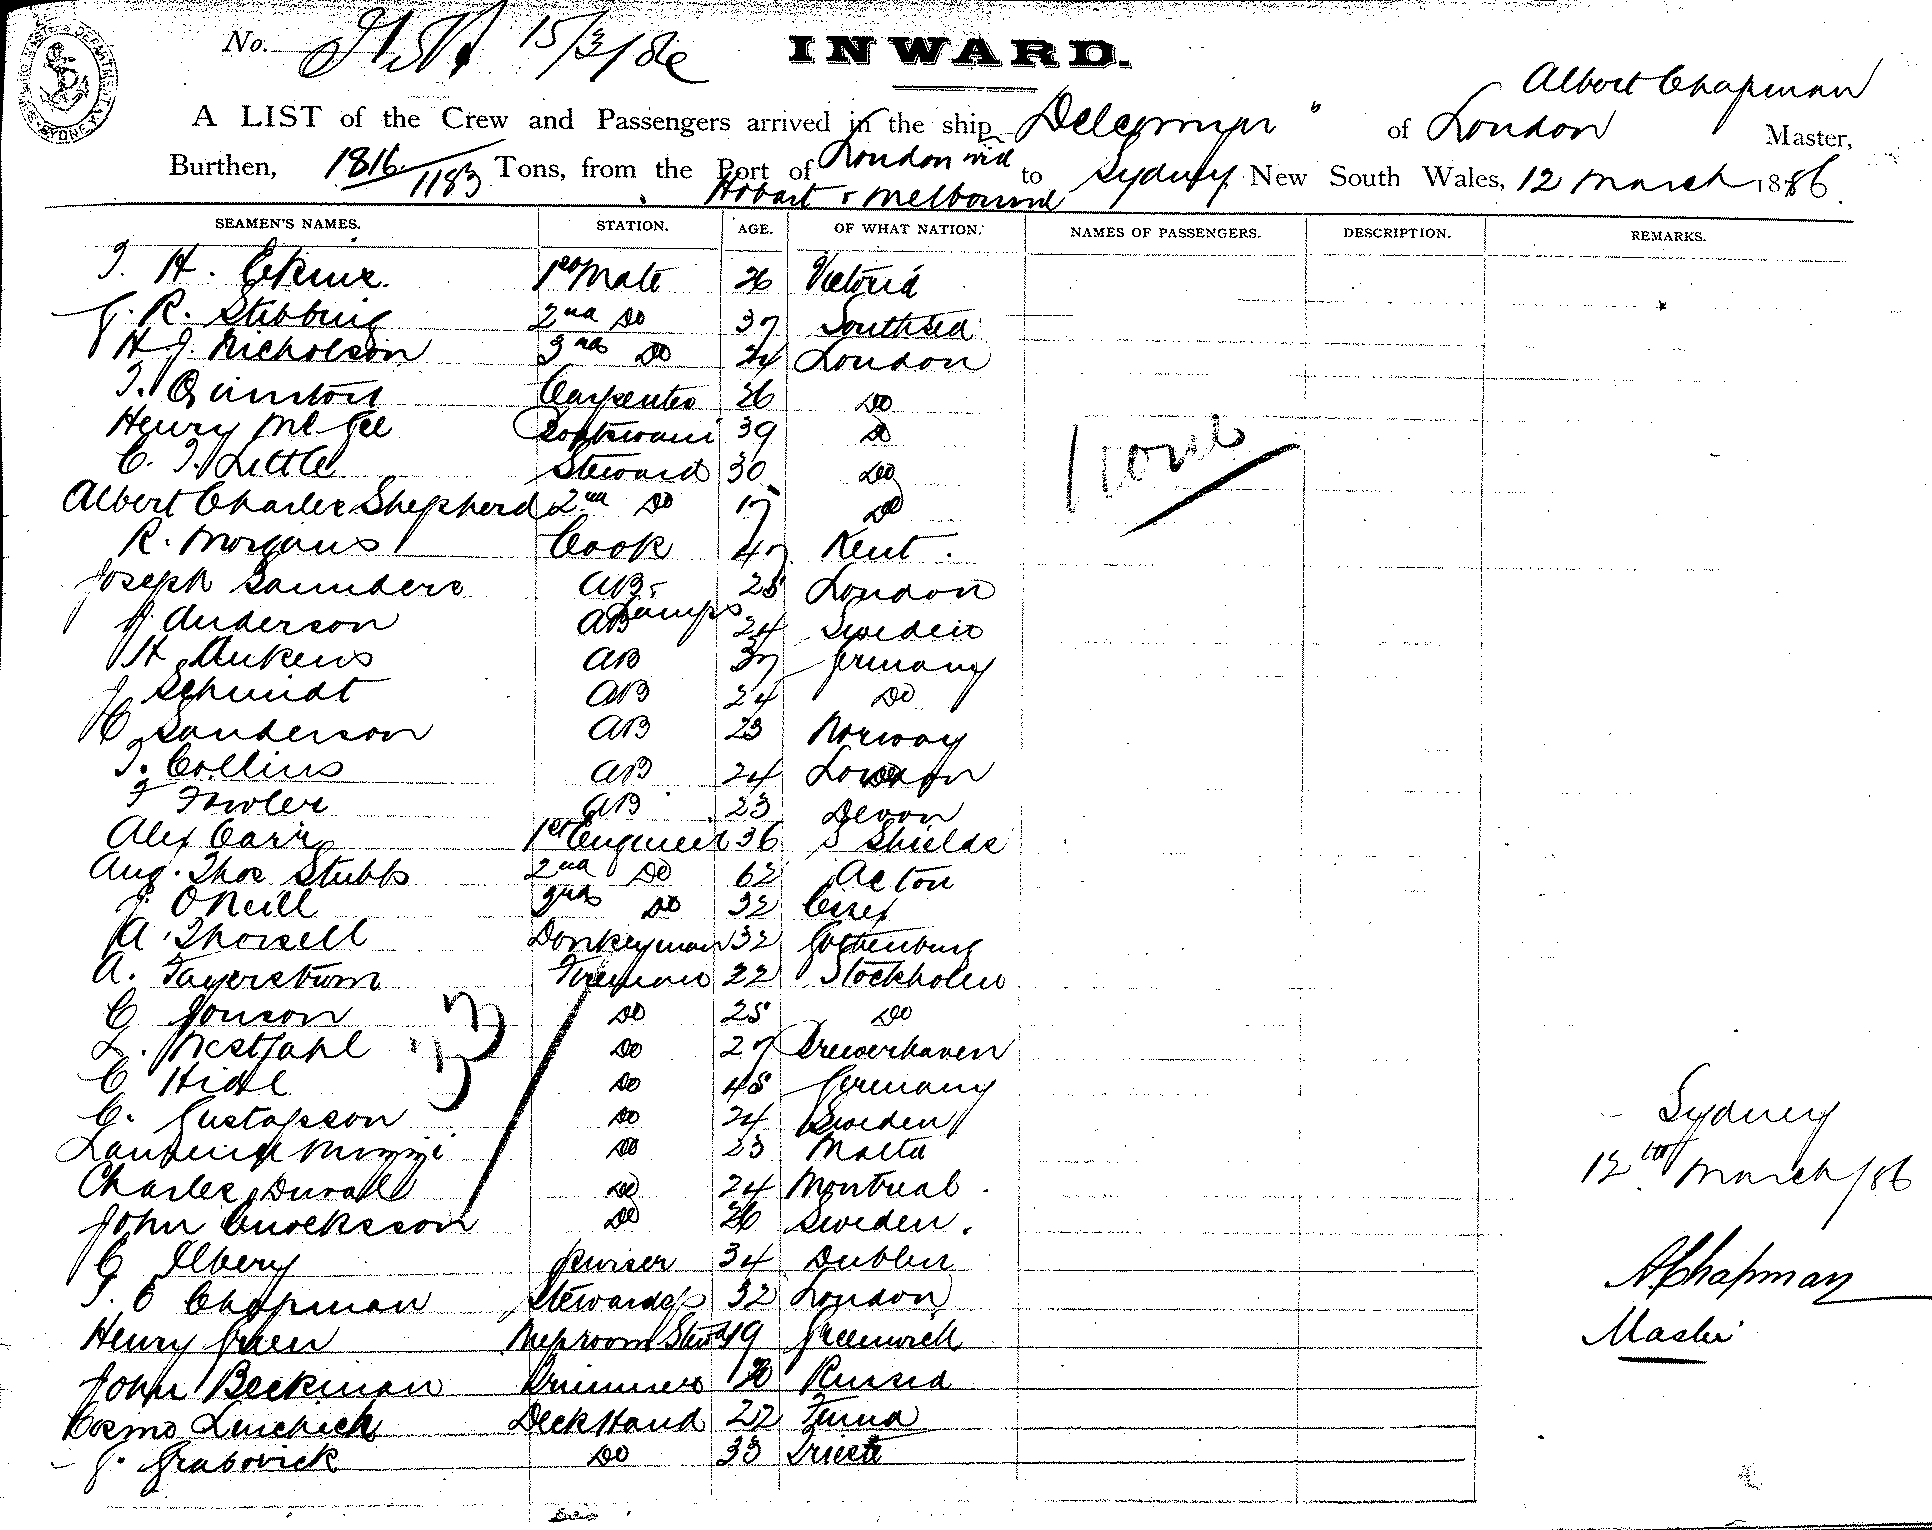 No. 15/3/86
INWARD.
Albert Chapman
A LIST of the Crew and Passengers arrived in the ship of London Master,
Burthen, 1816/1183 Tons, from the Port of London via Hobart & Melbourne to Sydney, New South Wales, 12 March 1886.
SEAMEN'S NAMES. STATION. AGE. OF WHAT NATION. NAMES OF PASSENGERS. DESCRIPTION. REMARKS.
H. 1st Mate 26 Victoria
R. Stebbing 2nd Do 37 Southsea
H J. Nicholson 3rd Do 24 London
Carpenter 26 Do
Henry McGee Boatswain 39 Do
C. Little Steward 30 Do
Albert Charles Shepherd 2nd Do 17 Do
R. Morgans Cook 47 Kent.
Joseph Saunders AB Lamps 25 London
Anderson AB 24 Sweden
H AB 37 Germany
J Schmidt AB 24 Do
C Sanderson AB 23 Norway
Collins AB 24 London
F Fowler AB 23 Devon
Alex Carr 1st Engineer 36 S Shields
Aug. Thos Stubbs 2nd Do 62 Acton
J. O'Neill 3rd Do 32 Essex
A. Thorsell Donkeyman 32 Gothenburg
A. Fagerstrom Fireman 22 Stockholm
C Jonson Do 25 Do
Do 27
C Do 45 Germany
C. Gustafsson Do 24 Sweden
Do 23 Malta
Charles Duvall Do 24 Montreal.
John Do 26 Sweden.
C Ilbery Purser 34 Dublin
Chapman Stewardess 32 London
Henry Green Messroom Stewd 19 Greenwich
John Beckman 20 Russia
Cosmo Deck Hand 22
G. Grabovick Do 33 Trieste
33
None
Sydney
12th March/86
A Chapman
Master